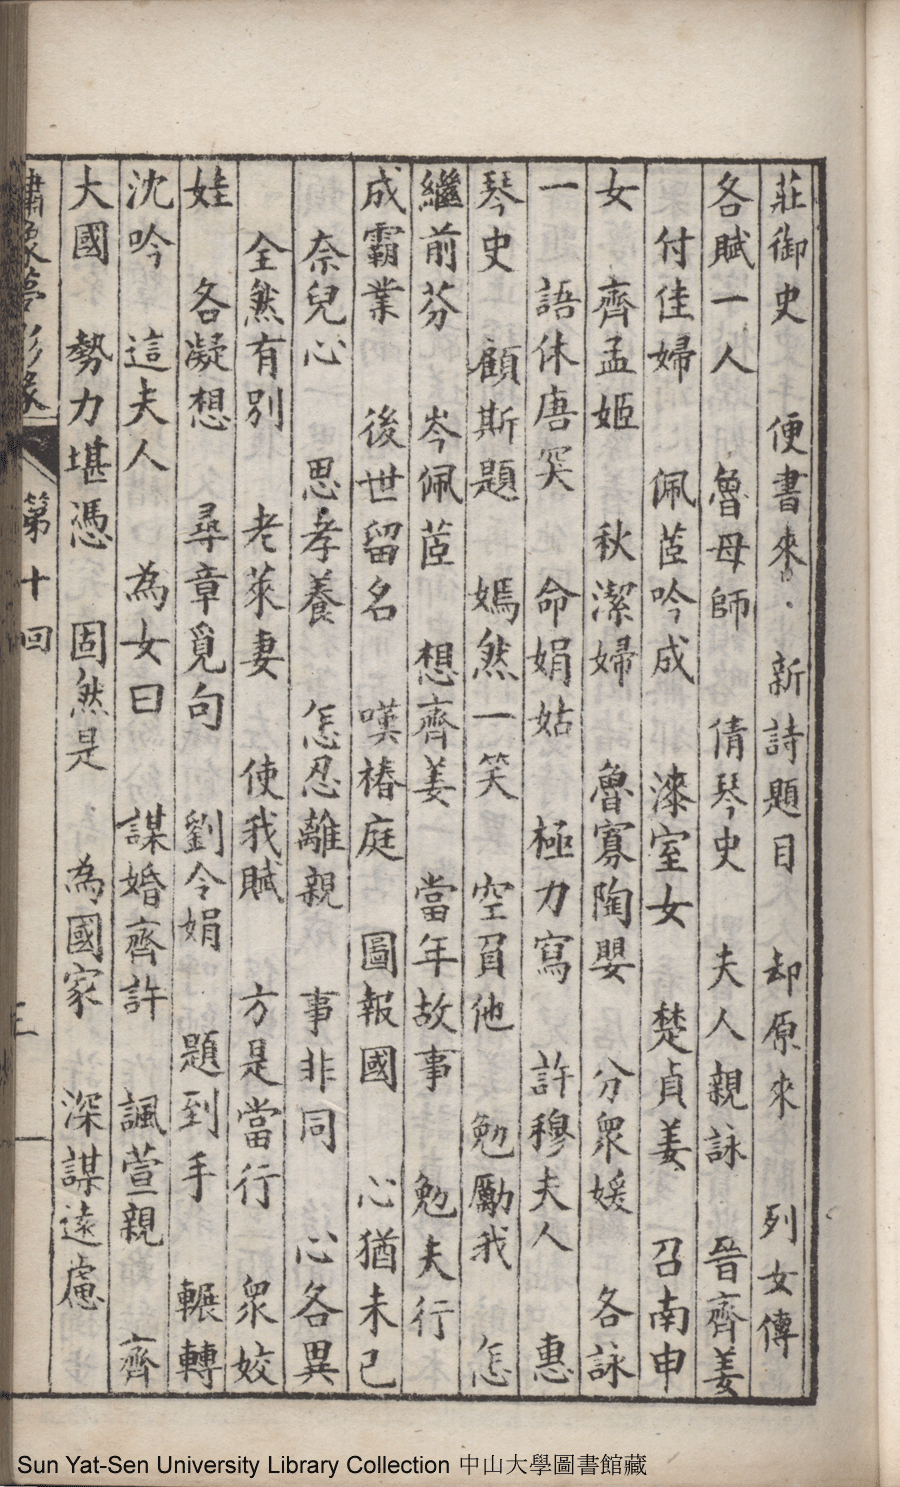 莊御史　便書來　新詩題目　却原來　列女傳
各賦一人　魯母師　倩琴史　夫人親詠　晉齊姜
付佳婦　佩茝吟成　漆室女　楚貞姜　召南申
女　齊孟姬　秋潔婦　魯寡陶嬰　分衆媛　各詠
一　語休唐突　命娟姑　極力寫　許穆夫人　惠
琴史　顧斯題　嫣然一笑　空負他　勉勵我　怎
繼前芬　岑佩茝　想齊姜　當年故事　勉夫行
成霸業　後世留名　嘆椿庭　圖報國　心猶未已
奈兒心　思孝養　怎忍離親　事非同　心各異
全然有別　老萊妻　使我賦　方是當行　眾姣
娃　各凝想　尋章覓句　劉令娟　題到手　輾轉
沈吟　這夫人　為女曰　謀婚齊許　諷萱親　齊
大國　勢力堪憑　固然是　為國家　深謀遠慮
繡象夢影緣　第十回
Sun Yat-Sen University Library Collection 中山大學圖書館藏